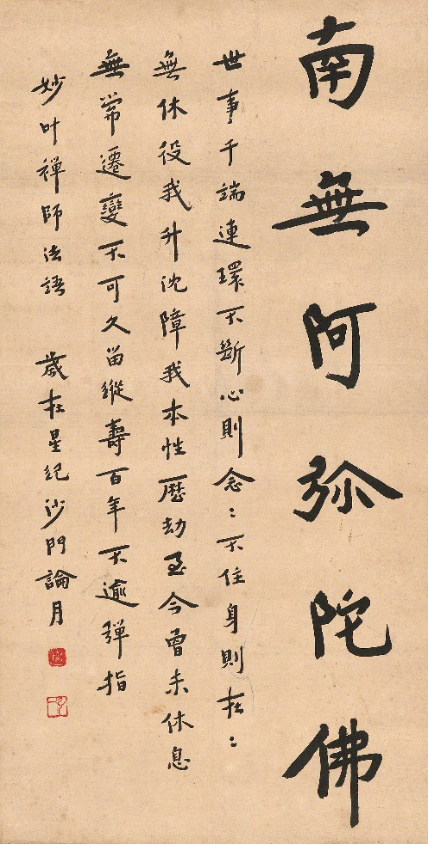 南無阿弥陀佛
世事千端連環不斷心則念〻不住身則在〻
無休役我升沈障我本性歷劫至今曾未休息
無常遷變不可久留縱壽百年不逾彈指
妙叶禅師法語 歲在星紀沙門論月